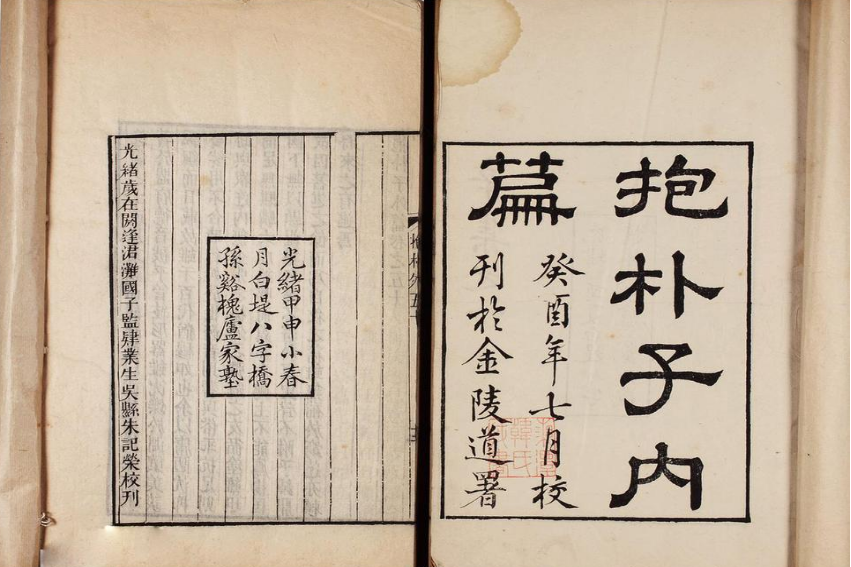 抱朴子內
篇
癸酉年七月校
刊於金陵道署
光緒甲申小春
月白堤八字橋
孫谿槐廬家塾
光緒歲在閼逢涒灘國子監肄業生吳縣朱記榮校刊